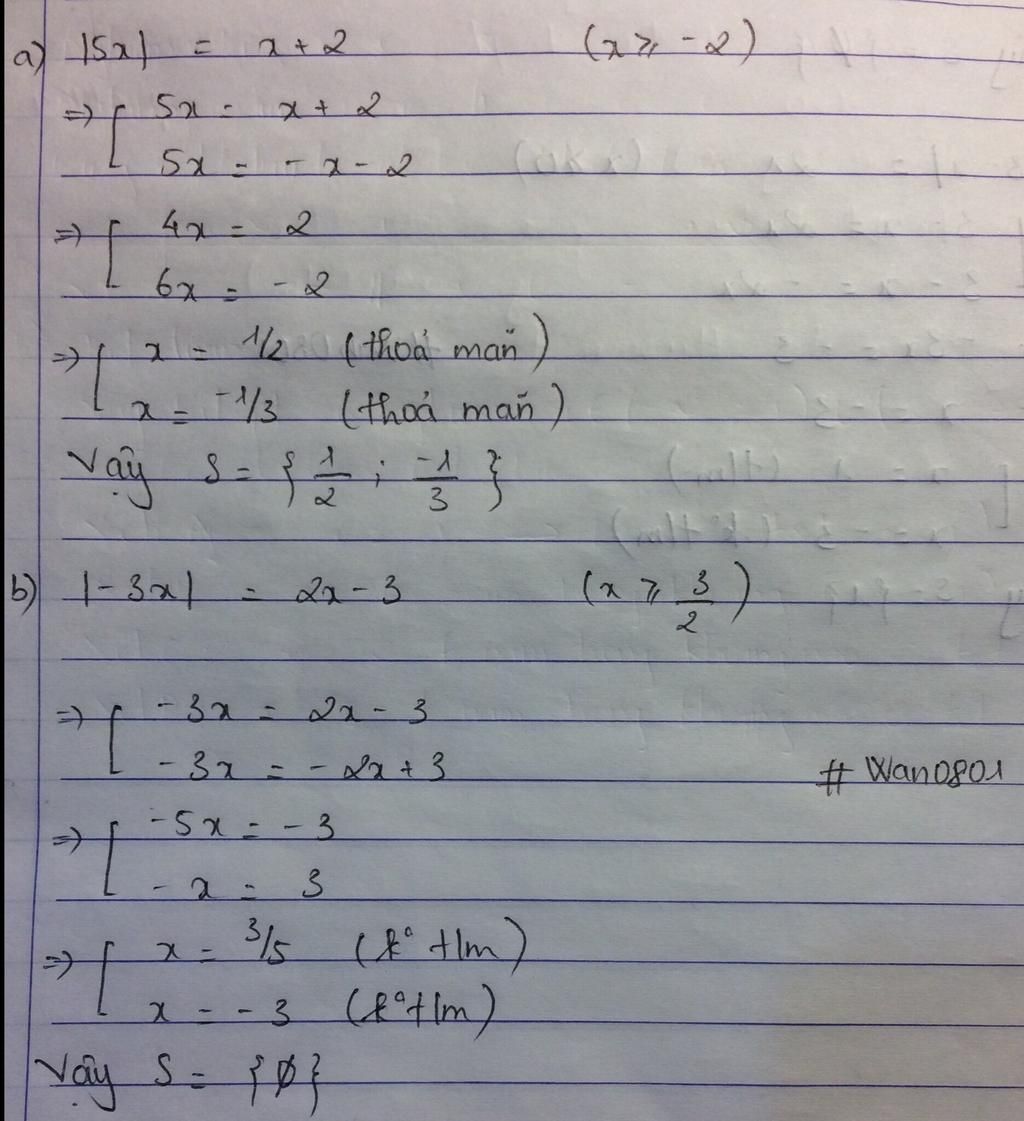 a) |5x| = x + 2 (x ⩾ -2)
=> [ 5x = x + 2
5x = - x - 2
=> [ 4x = 2
6x = - 2
=> [ x = 1/2 (thoả mãn)
x = -1/3 (thoả mãn)
Vậy S = { 1/2 ; -1/3 }
b) |-3x| = 2x - 3 (x ⩾ 3/2)
=> [ -3x = 2x - 3
-3x = - 2x + 3
# Wan0801
=> [ -5x = - 3
- x = 3
=> [ x = 3/5 (k° t/m)
x = - 3 (k° t/m)
Vậy S = {∅}